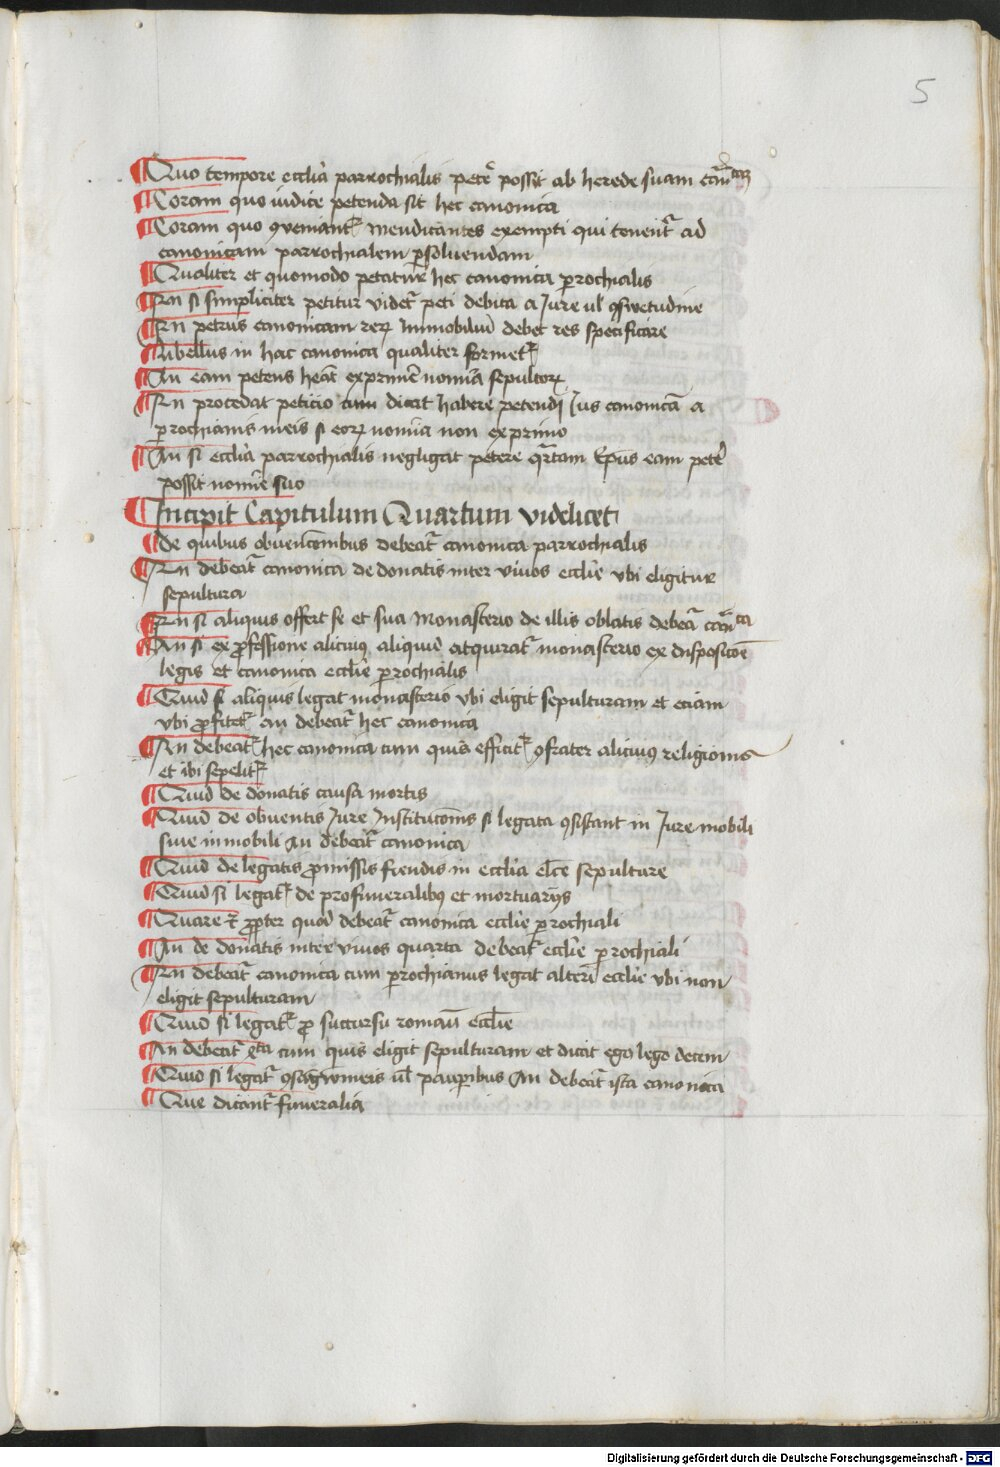 5
Quo tempore ecclia parrochialis petere possit ab herede suam
Coram quo iudice petenda sit hec canonica
Coram quo ꝯueniantr mendicantes exempti qui tenentr ad
canonicam parrochialem ꝑsoluendam
Qualiter et quomodo petatur hec canonica ꝑrochialis
An si simpliciter petitur videtr peti debita a Jure ul ꝯswetudine
An petens canonicam reꝝ Immobiliū debet res specificare
Libellus in hac canonica qualiter formetr
An eam petens heat exprime noīa sepultoꝝ
An procedat peticio cum dicit habere petendi Jus canonicā a
ꝑrochianis meis si eoꝝ nomīa non exprimo
An si ecclia parrochialis negligat petere qrtam Epus eam petere
possit nomīe suo
Incipit Capitulum Quartum videlicet
De quibus obuencōnibus debeatr canonica parrochialis
An debeatr canonica de donatis inter viuos ecclie vbi eligitur
sepultura
An si aliquis offert se et sua monasterio de illis oblatis debeatr
An si ex ꝓfessione alicuius aliquid atquiratr monasterio ex disposicōe
legis et canonica ecclie ꝑrochialis
Quid si aliquis legat monasterio vbi eligit sepulturam et eciam
vbi ꝓfitetr an debeatr hec canonica
An debeatr hec canonica cum quis efficitr ꝯfrater alicuius religionis
et ibi sepelitr
Quid de donatis causa mortis
Quid de obuentis Jure Institucōnis si legata ꝯsistant in Jure mobili
siue inmobili An debeatr canonica
Quid de legatis ꝓmissis fiendis in ecclia elcē sepulture
Quid si legatr de profuneralibus et mortuariis
Quare et ꝓpter quid debeatr canonica ecclie ꝑrochiali
An de donatis inter viuos quarta debeatr ecclie ꝑrochiali
An debeatr canonica cum ꝑrochianus legat alteri ecclie vbi non
eligit sepulturam
Quid si legatr ꝓ succursu romane Ecclie
An debeatr qrta cum quis eligit sepulturam et dicit ego lego decem
Quid si legatr ꝯsagwineis ul pauꝑibus An debeatr ista canonica
Que dicantr funeralia
Digitalisierung gefördert durch die Deutsche Forschungsgemeinschaft - DFG